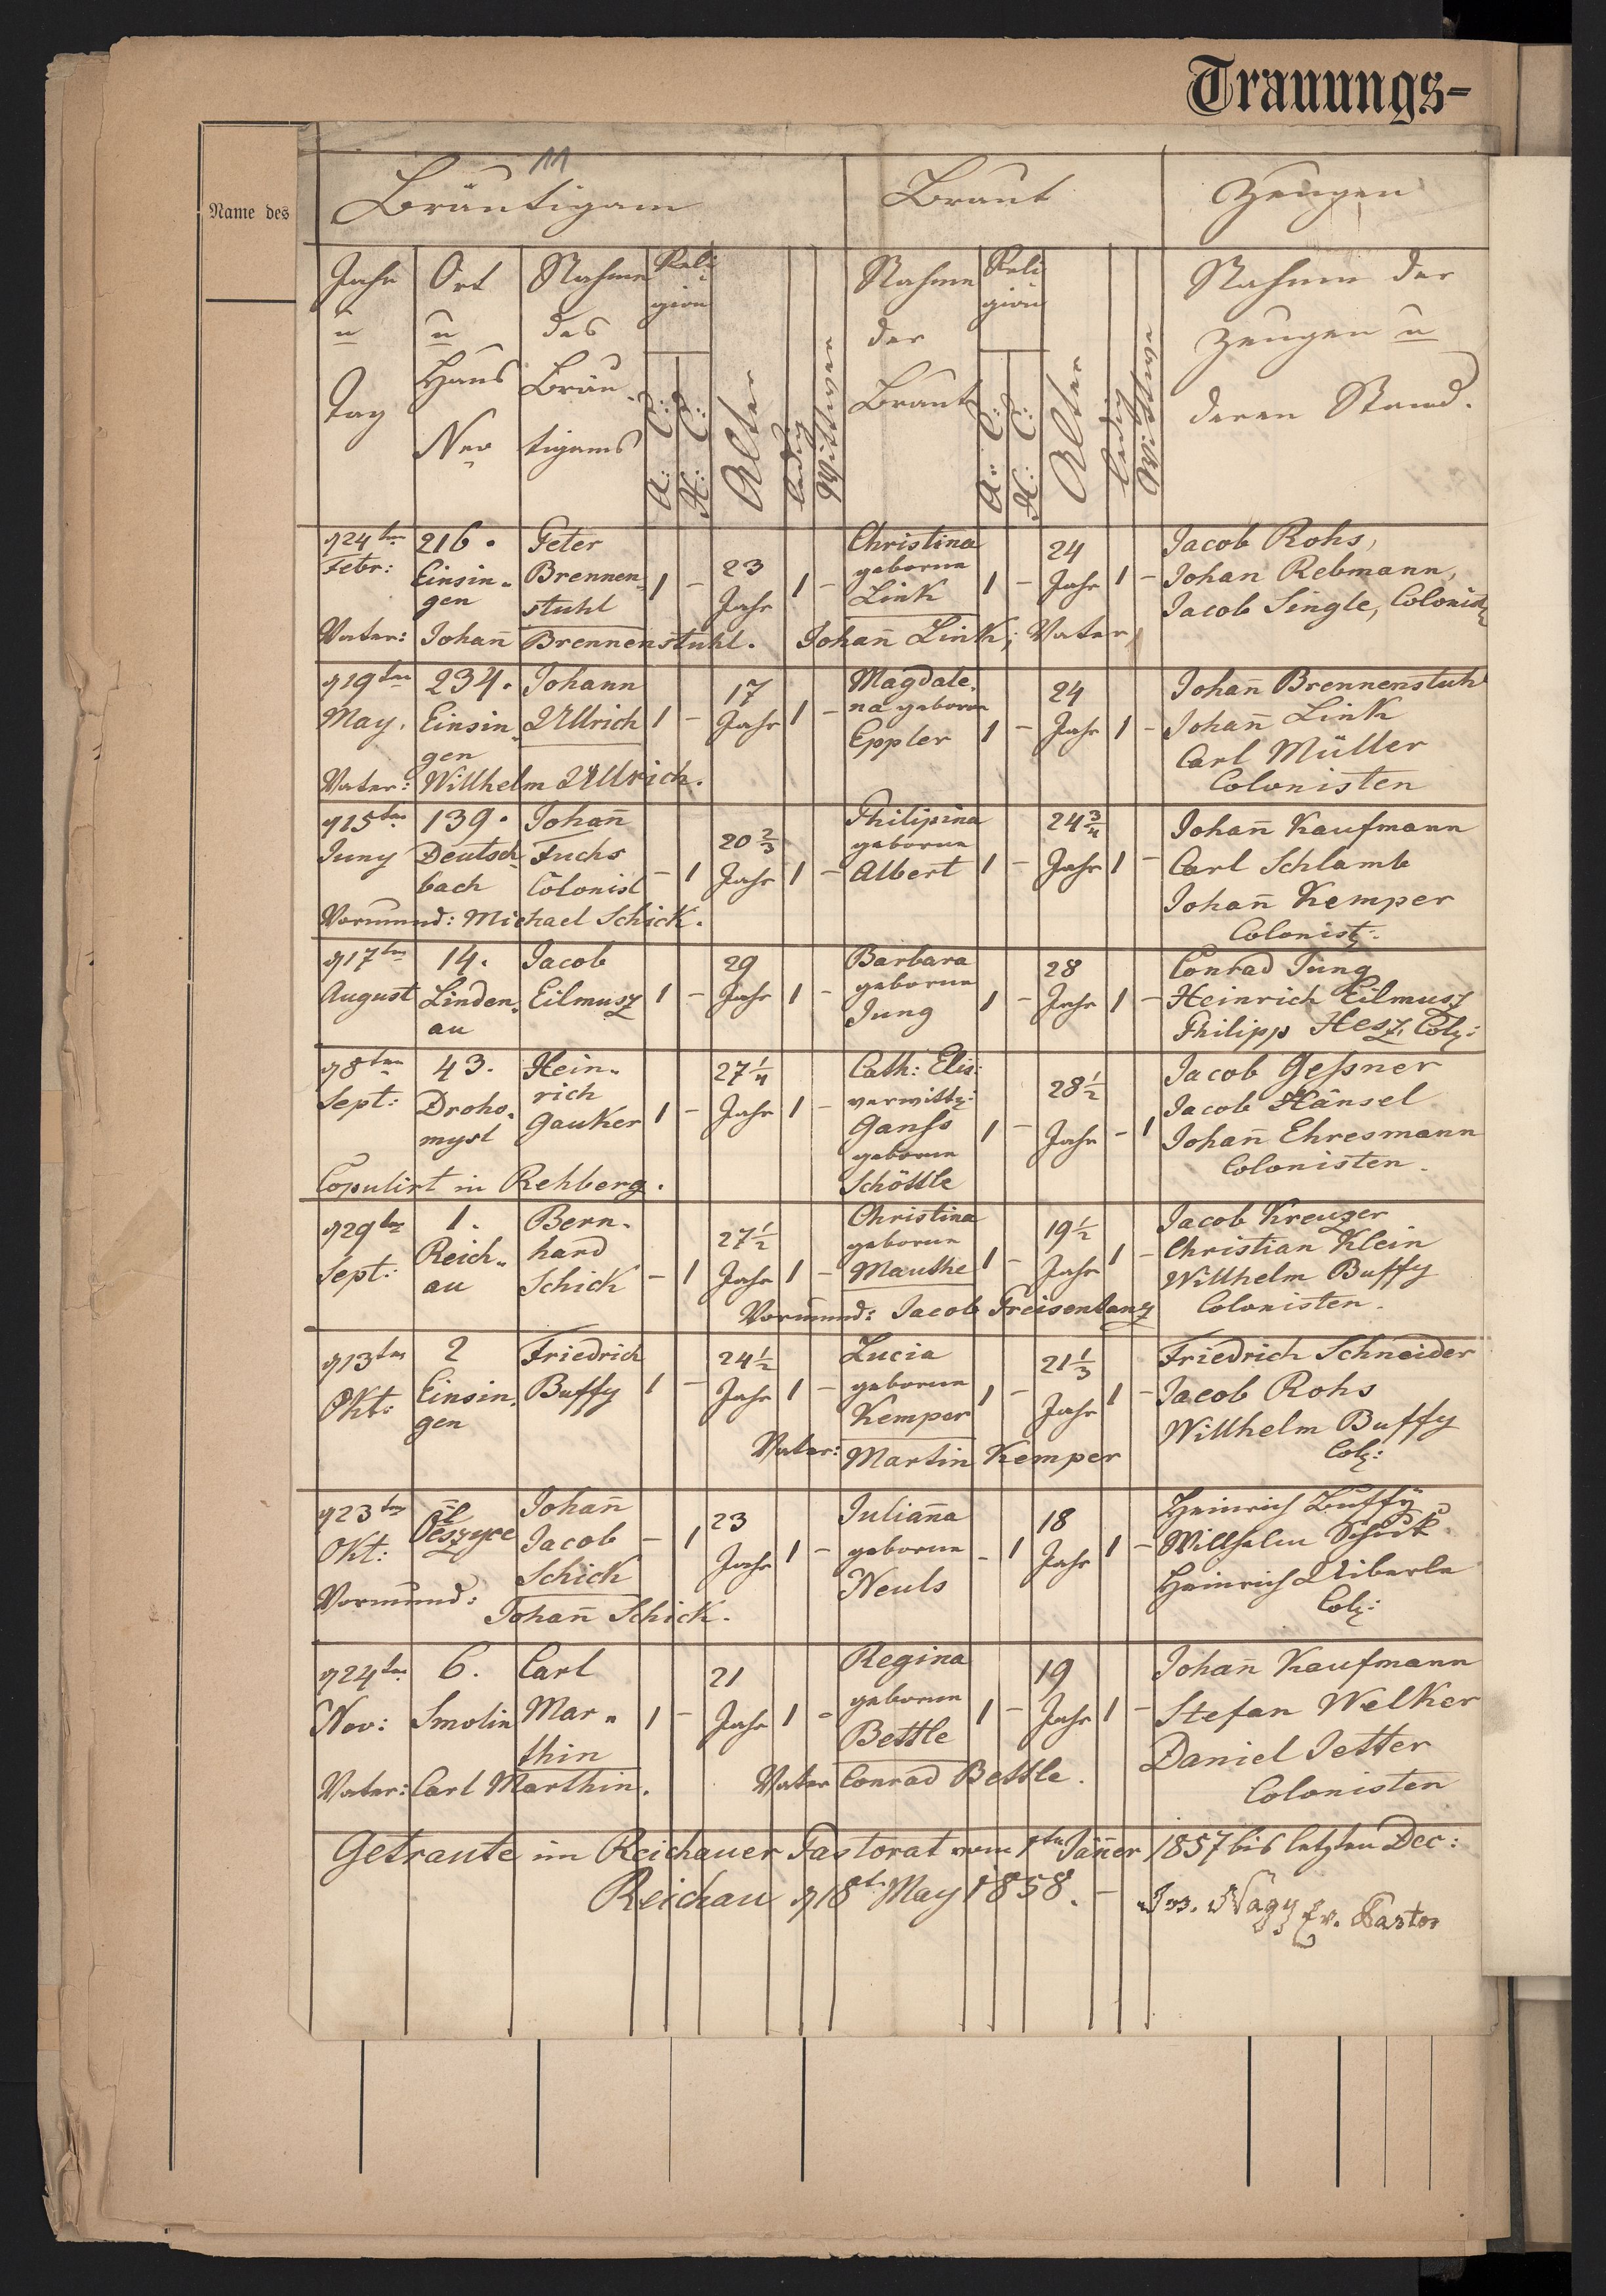 Trauungs-
Name des
11
Bräutigam Braut Zeugen
Jahr u Tag
Ort u Haus Nro
Nahme des Bräutigams
Religion
A: C:
H: C:
Alter
ledig
Wittwer
Nahme der Braut
Religion
A: C:
H: C:
Alter
ledig
Wittwe
Nahmen der
Zeugen u
deren Stand.
d 24ten 216. Peter 23 Christina 24 Jacob Rohs,
Febr: Einsin- Brennen- 1 - Jahr 1 - geborne 1 - Jahr 1 - Johan Rebmann,
gen stuhl Link Jacob Single, Colonist
Vater: Johan̄ Brennenstuhl. Johan̄ Link, Vater
d 19ten 234. Johann 17 Magdale- 24 Johan̄ Brennenstuhl
May. Einsin- Ullrich 1 - Jahr 1 - na geborne 1 - Jahr 1 - Johan̄ Link
gen Eppler Carl Müller
Vater: Willhelm Ullrich. Colonisten
d 15ten 139. Johan̄ 20 2/3 Philipina 24 3/4 Johan̄ Kaufmann
Juny Deutsch- Fuchs - 1 Jahr 1 - geborne 1 - Jahr 1 - Carl Schlamb
bach Colonist Albert Johan̄ Kemper
Vormund: Michael Schick. Colonist:
d 17ten 14. Jacob 29 Barbara 28 Conrad Jung
August Linden- Eilmusz 1 - Jahr 1 - geborne 1 - Jahr 1 - Heinrich Eilmusz
au Jung Philipp Hesz, Col:
d 8ten 43. Hein- 27 1/4 Cath: Elis: 28 1/2 Jacob Geßner
Sept: Droho- rich 1 - Jahr 1 - verwitt: 1 - Jahr - 1 Jacob Hänsel
mysl Gauker Ganß Johan̄ Ehresmann
geborne Colonisten.
Copulirt in Rehberg. Schöttle
d 29ten 1. Bern- 27 1/2 Christina 19 1/2 Jacob Kreuzer
Sept: Reich- hard - 1 Jahr 1 - geborne 1 - Jahr 1 - Christian Klein
au Schick Mauthe Willhelm Buffy
Vormund: Jacob Freisenlang Colonisten.
d 13ten 2 Friedrich 24 1/2 Lucia 21 1/3 Friedrich Schneider
Okt: Einsin- Buffy 1 - Jahr 1 - geborne 1 - Jahr 1 - Jacob Rohs
gen Kemper Willhelm Buffy
Vater: Martin Kemper Col:
d 23ten Oleszyce Johan̄ 23 Julian̄a 18 Heinrich Buffy
Okt: Jacob - 1 Jahr 1 - geborne - 1 Jahr 1 - Willhelm Schick
Schick Neuls Heinrich Aiberle
Vormund: Johan̄ Schick. Col:
d 24ten 6. Carl 21 Regina 19 Johan̄ Kaufmann
Nov: Smolin Mar- 1 - Jahr 1 - geborne 1 - Jahr 1 - Stefan Welker
thin Bettle Daniel Jetter
Vater: Carl Marthin. Vater Conrad Bettle. Colonisten
Getraute im Reichauer Pastorat vom 1ten Jän̄er 1857 bis letzten Dec:
Reichau d 18t May 1858. - Nagy Ev. Pastor